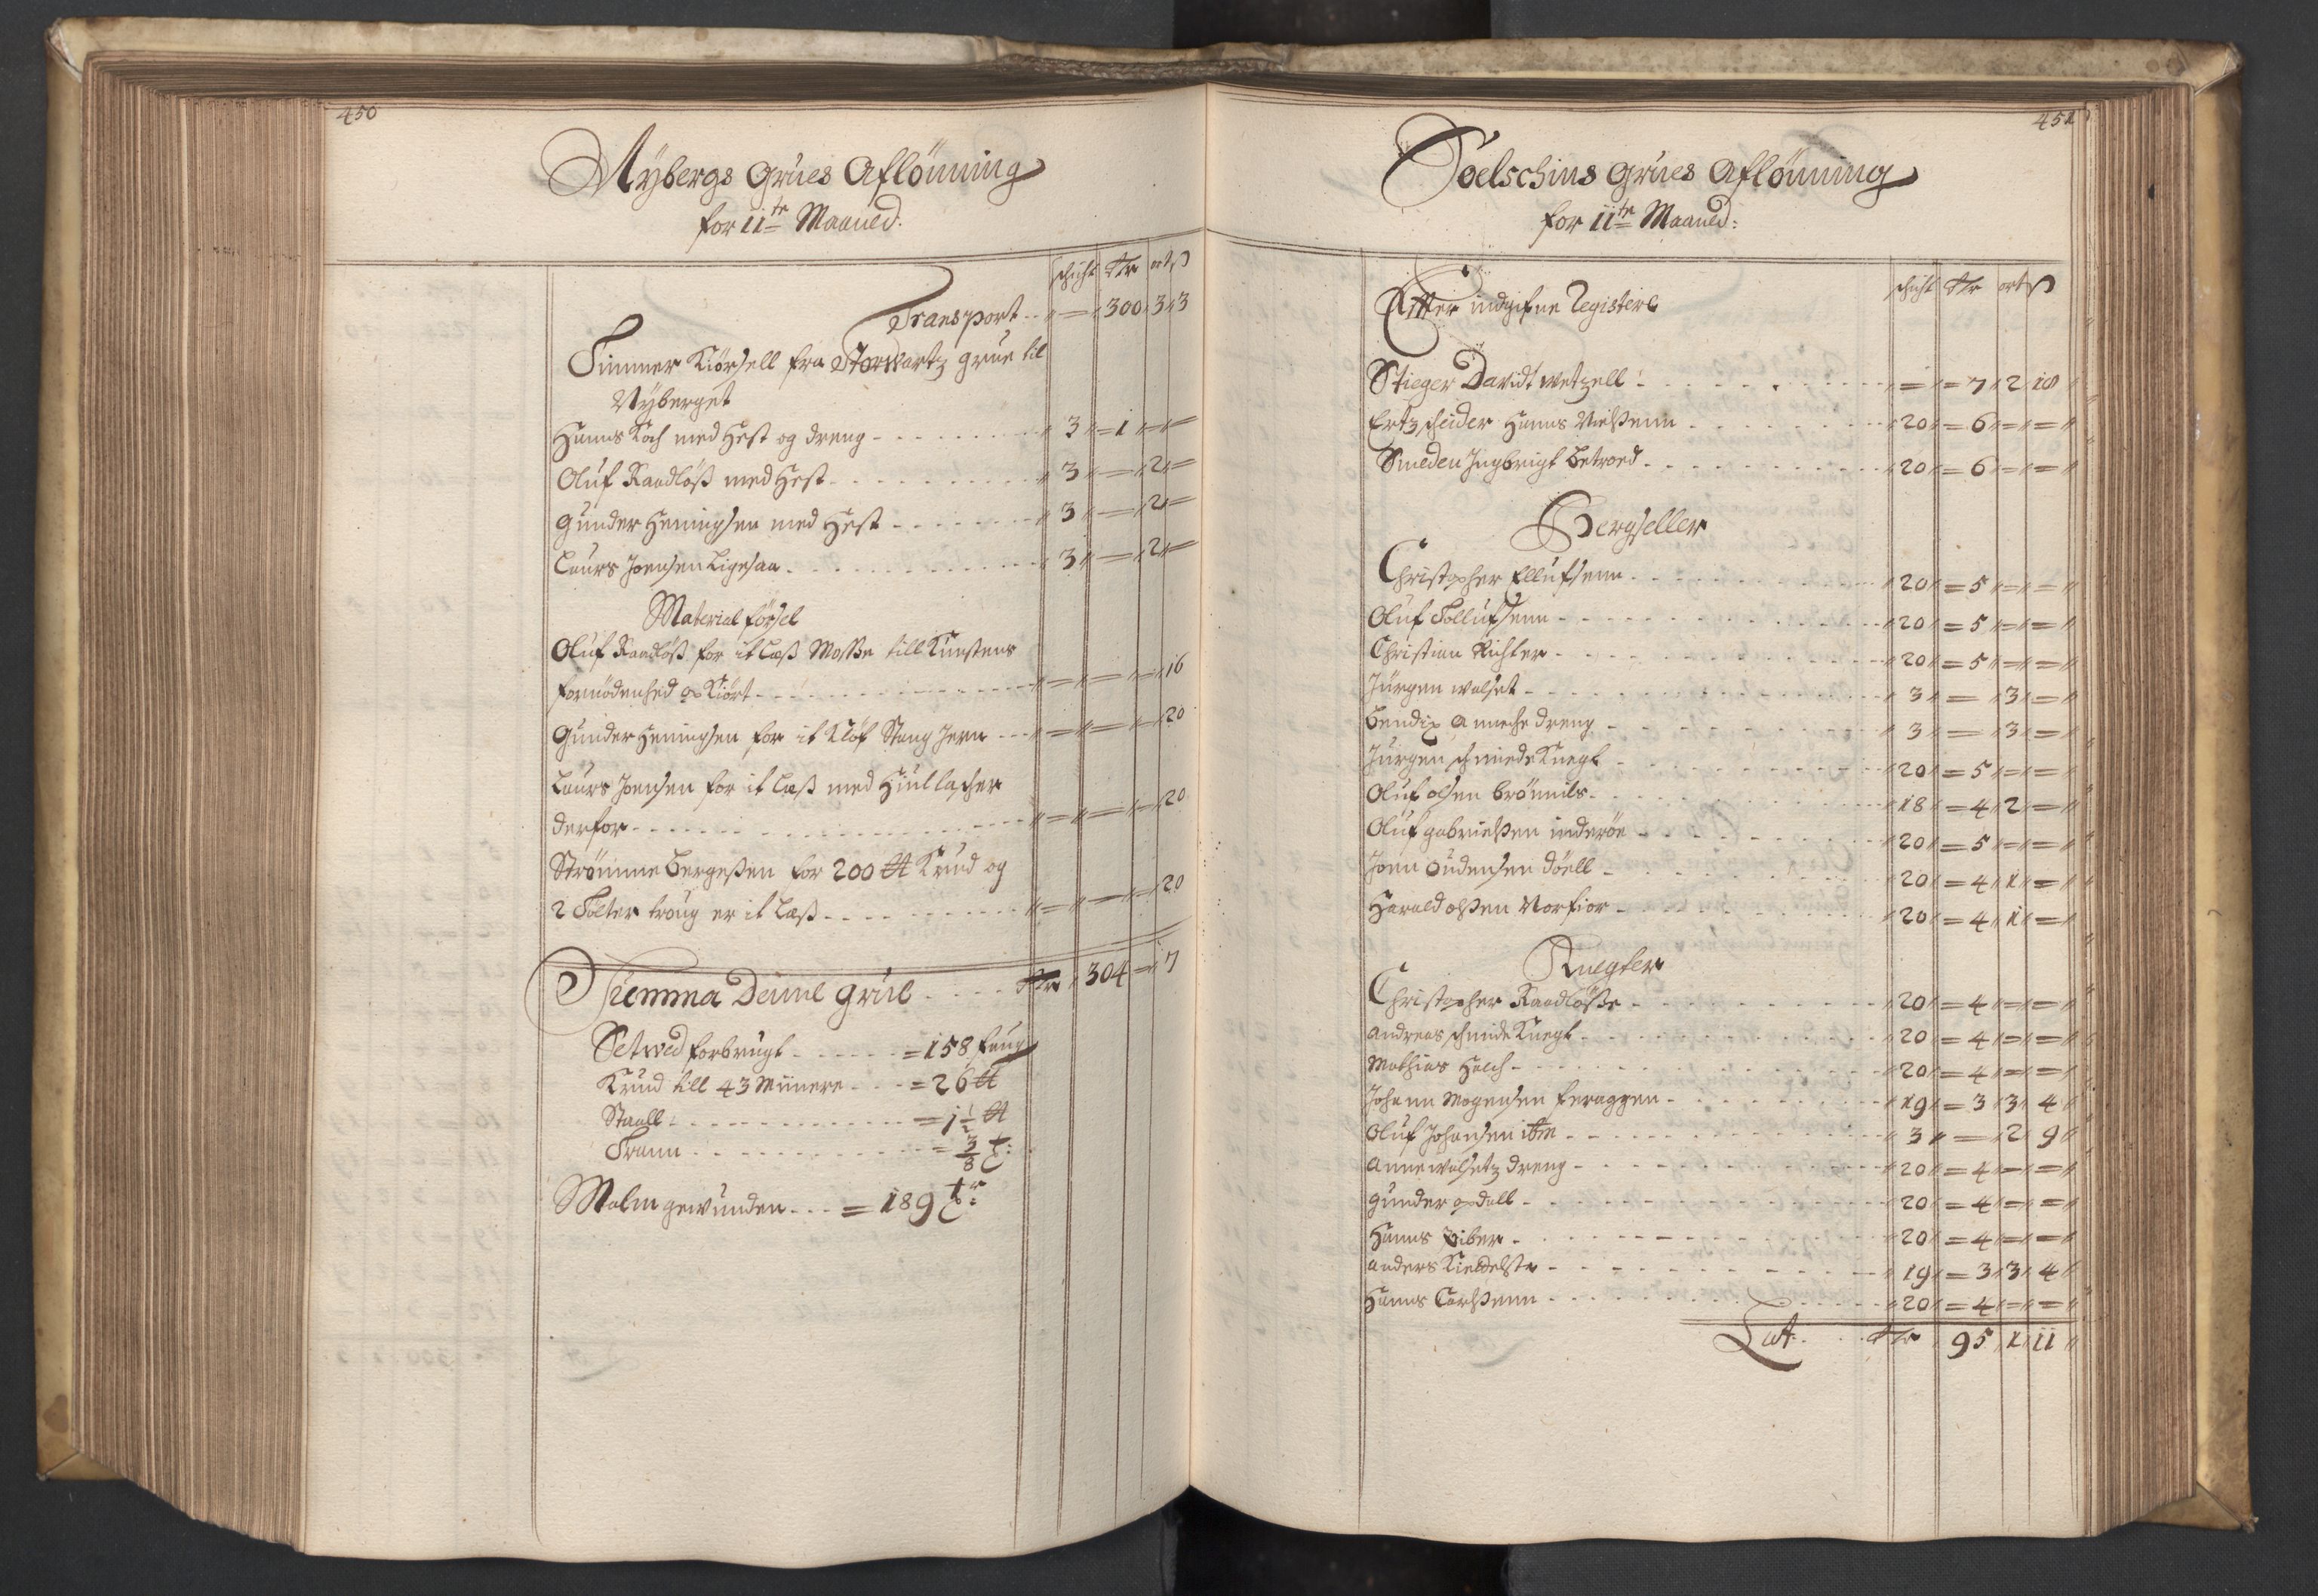 450
Nÿbergs Grües Aflönning
for 11te Maaned:
schicht Rdr ort ß
Transport - - 300 3 3
Timmer Kiörsell fra Storwartz grue til
Nÿberget
Hanns Koch med Hest og dreng - - 3 = 1 = =
Oluf Raadlöß med Hest - - 3 = 2 =
Gunder Heningsen med Hest - - 3 = 2 =
Laurs Joensen Ligesaa - - 3 = 2 =
Material försel
Oluf Raadlöß for it Læß Moße till Kunstens
fornödenhed op Kiört - - = = = 16
Gunder Heningsen for it Klöf Stang Jern - - = = = 20
Laurs Joensen for it Læß med Hiull
derfor - - = = = 20
Strömme Bergeßen for 200 ℔ Krud og
2 Tolter troug er it Læß - - = = = 20
Summa Denne Grue - - Rdr 304 = 7
Setwed forbrugt - - = 158 faug
Krud till 43 Miinere - - = 26 ℔
Staall - - = 1½ ℔
Trann - - = 3/8 t:
Malm gewunden - - = 189 tr:
451
Soelschins Grües Aflönning
for 11te Maaned:
schicht Rdr ort ß
Effter indgifne Register
Stieger Davidt Wetzell - - = = 7 2 18
Ertzscheider Hanns Nielßenn - - 20 = 6 = =
Smeden Ingbrigt Betroed - - 20 = 6 = =
Bergseller
Christopher Ellufsenn - - 20 = 5 = =
Oluf Tollufsenn - - 20 = 5 = =
Christian Richter - - 20 = 5 = =
Jürgen Walset - - 3 = 3 =
Bendix Anneche dreng - - 3 = 3 =
Jürgen schmiedeKnegt - - 20 = 5 = =
Oluf olsen Brönnils - - 18 = 4 2 =
Oluf gabrielßen inderöe - - 20 = 5 = =
Joen Oudensen döell - - 20 = 4 1 =
Harald olßen Norfior - - 20 = 4 1 =
Knegter
Christopher Raadlöße - - 20 = 4 = =
Andreas schmideKnegt - - 20 = 4 = =
Mathias Holch - - 20 = 4 = =
Johann Mogensen feraggen - - 19 = 3 3 4
Oluf Johansen itm - - 3 = 2 9
Anne Walsetz dreng - - 20 = 4 = =
Gunder opdall - - 20 = 4 = =
Hanns Biber - - 20 = 4 = =
Anders - - 19 = 3 3 4
Hanns Carlßenn - - 20 = 4 = =
Lat: - - Rdr 95 1 11